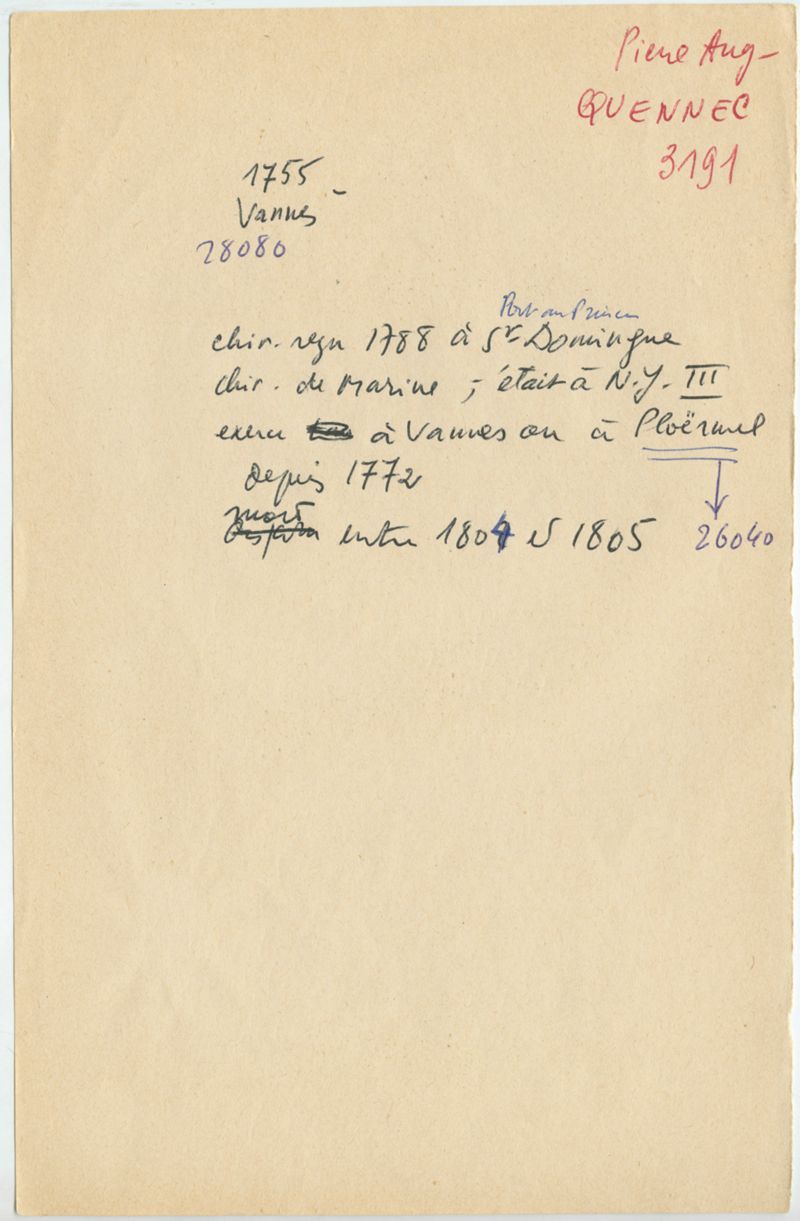 Pierre Aug-
QUENNEC
3191
1755 -
Vannes
28080
Port au Prince
chir. reçu 1788 à St Domingue
chir. de Marine ; était à N.Y. III
exerce à Vannes ou à Ploërmel
depuis 1772
mort
entre 1804 et 1805
26040